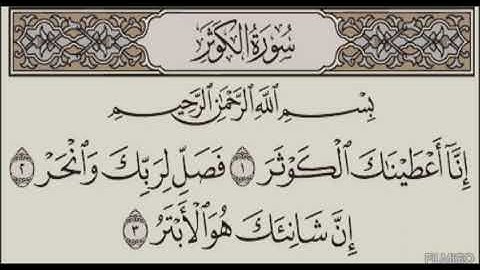 سُورَةُ الكَوْثَر
بِسْمِ ٱللَّهِ ٱلرَّحْمَٰنِ ٱلرَّحِيمِ
إِنَّآ أَعْطَيْنَٰكَ ٱلْكَوْثَرَ ١ فَصَلِّ لِرَبِّكَ وَٱنْحَرْ ٢
إِنَّ شَانِئَكَ هُوَ ٱلْأَبْتَرُ ٣
FILMIGO